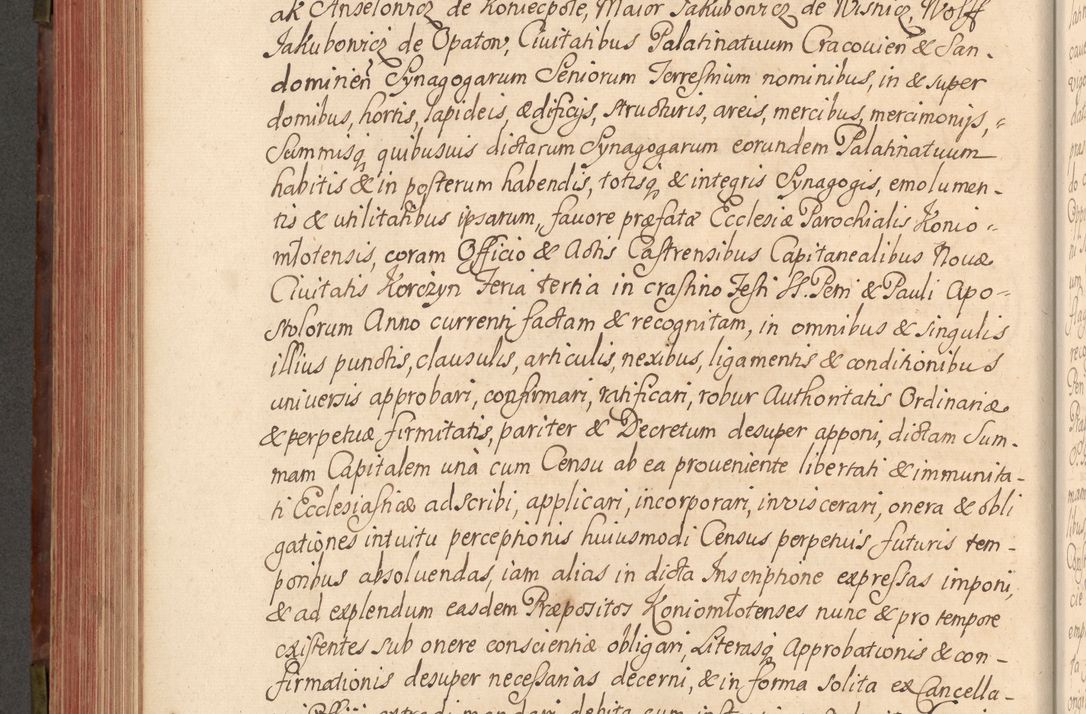 ak Anselonicz de Koniecpole, Maior Jakubonicz de Wisnicz, Wolff
Jakubonicz de Opatow, Ciuitatibus Palatinatuum Cracouien & San-
dominien Synagogarum Seniorum Terrestrium nominibus, in & super
domibus, hortis, lapideis, ædificijs, structuris, areis, mercibus, mercimonijs,
Summisq quibusuis dictarum Synagogarum eorundem Palatinatuum
habitis & in posterum habendis, totisq & integris Synagogis, emolumen-
tis & utilitatibus ipsarum, fauore præfatæ Ecclesiæ Parochialis Konio-
młotensis, coram Officio & Actis Castrensibus Capitanealibus Nouæ
Ciuitatis Korczyn Feria tertia in crastino Festi SS. Petri & Pauli Apo-
stolorum Anno currenti factam & recognitam, in omnibus & singulis
illius punctis, clausulis, articulis, nexibus, ligamentis & conditionibus
uniuersis approbari, confirmari, ratificari, robur Authoritatis Ordinariæ
& perpetuæ firmitatis, pariter & Decretum desuper apponi, dictam Sum-
mam Capitalem unà cum Censu ab ea proueniente libertati & immunita-
ti Ecclesiasticæ adscribi, applicari, incorporari, inviscerari, onera & obli
gationes intuitu perceptionis huiusmodi Census perpetuis futuris tem-
poribus absoluendas, iam alias in dicta Inscriptione expressas imponi,
& ad explendum easdem Præpositos Koniomłotenses nunc & pro tempore
existentes sub onere conscientiæ obligari, Literasq Approbationis & con-
firmationis desuper necessarias decerni, & in forma solita ex Cancella-